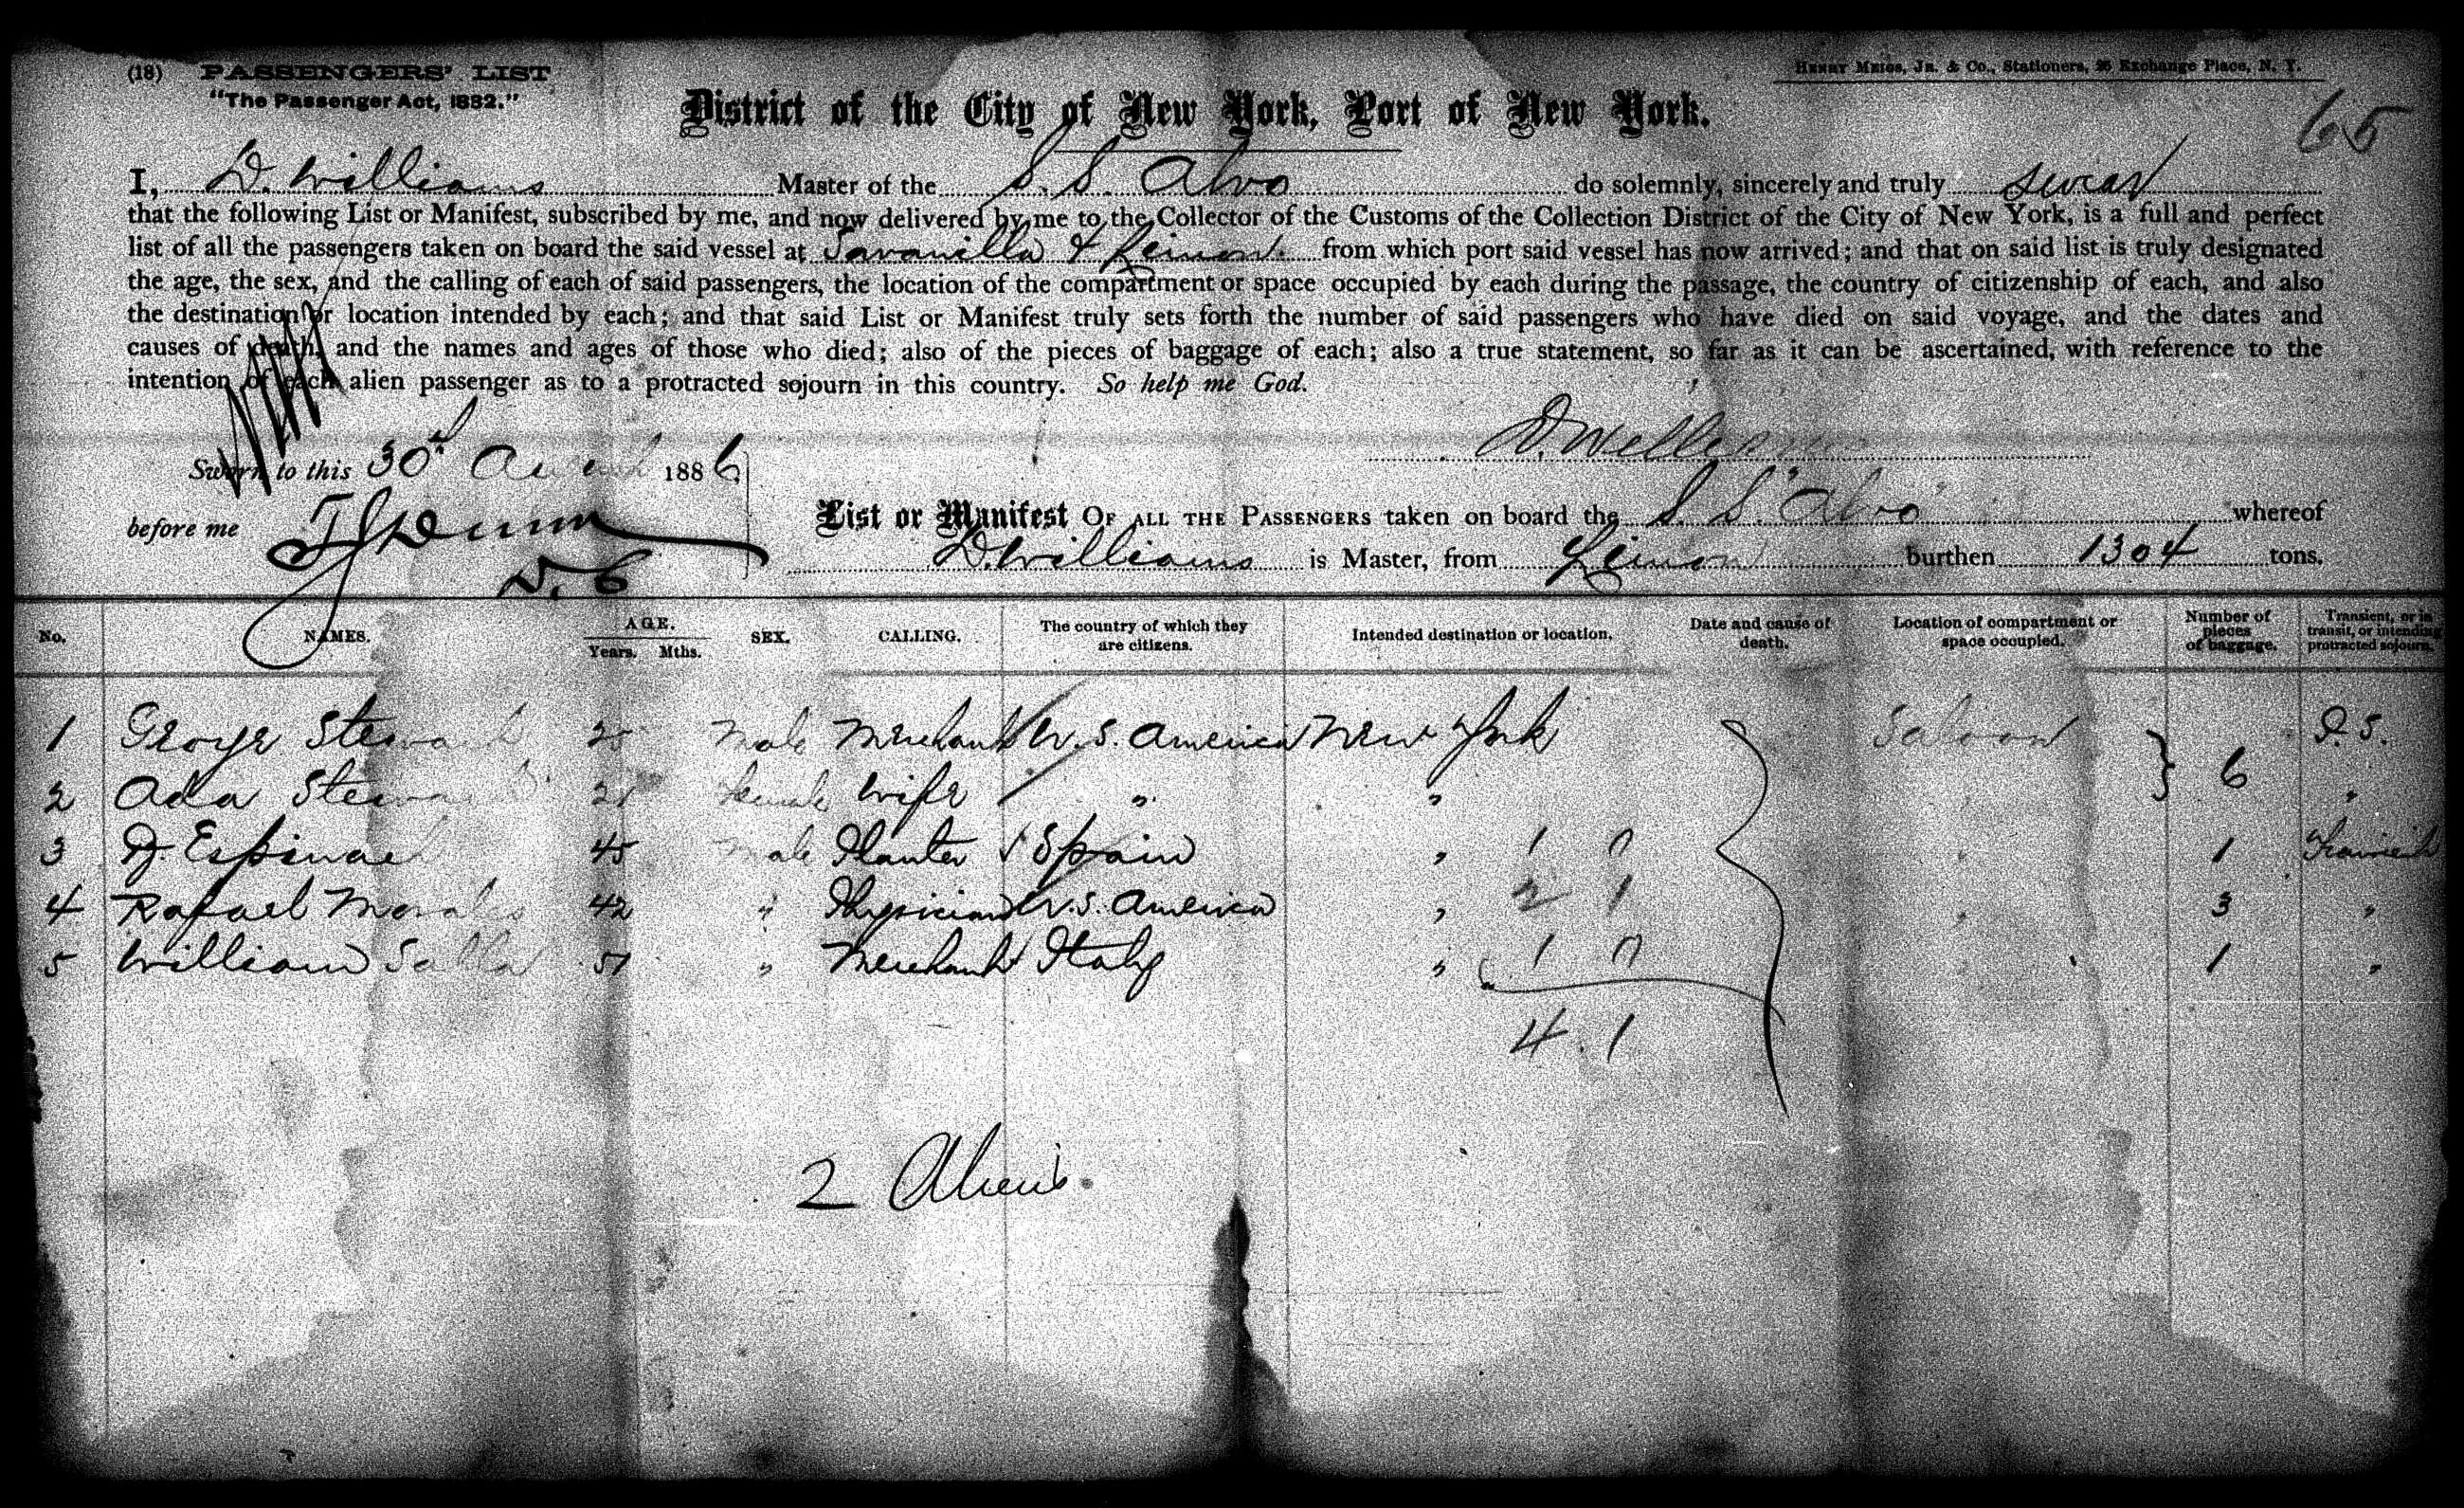 (18) PASSENGERS' LIST
"The Passenger Act, 1882."
HENRY MEIGS, JR. & CO., Stationers, 26 Exchange Place, N. Y.
65
District of the City of New York, Port of New York.
I, D. Williams Master of the S. S. Alvo do solemnly, sincerely and truly swear
that the following List or Manifest, subscribed by me, and now delivered by me to the Collector of the Customs of the Collection District of the City of New York, is a full and perfect
list of all the passengers taken on board the said vessel at Savanilla & Limon from which port said vessel has now arrived; and that on said list is truly designated
the age, the sex, and the calling of each of said passengers, the location of the compartment or space occupied by each during the passage, the country of citizenship of each, and also
the destination or location intended by each; and that said List or Manifest truly sets forth the number of said passengers who have died on said voyage, and the dates and
causes of death, and the names and ages of those who died; also of the pieces of baggage of each; also a true statement, so far as it can be ascertained, with reference to the
intention of each alien passenger as to a protracted sojourn in this country. So help me God.
D. Williams
Sworn to this 30th 1886
before me
D. C
List or Manifest OF ALL THE PASSENGERS taken on board the S. S. Alvo whereof
D. Williams is Master, from Limon burthen 1304 tons.
No. NAMES. AGE. Years. Mths. SEX. CALLING. The country of which they are citizens. Intended destination or location. Date and cause of death. Location of compartment or space occupied. Number of pieces of baggage. Transient, or in transit, or intending protracted sojourn.
1 George Male Merchant U. S. America New York Saloon P. S.
2 Ada female Wife " " 6 "
3 45 male Planter Spain " 1 0 " 1 Transient
4 Rafael Morales 42 " Physician U. S. America " 2 1 " 3 "
5 William " Merchant Italy " 1 0 " 1 "
4 1
2 Aliens